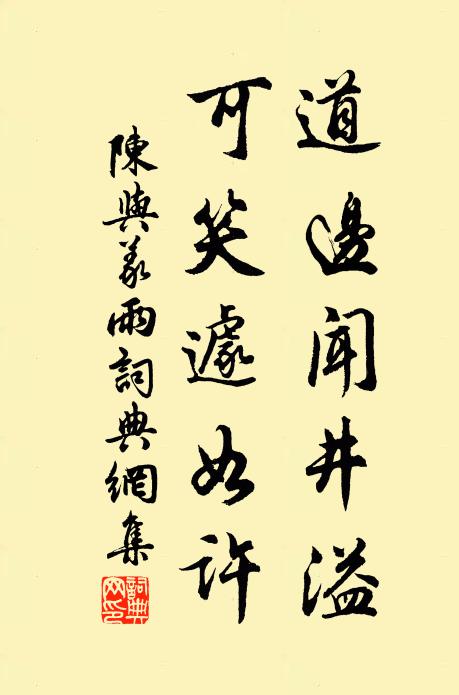 道邊聞井溢
可笑遽如許
陳與義雨詞典網集
詞典網印